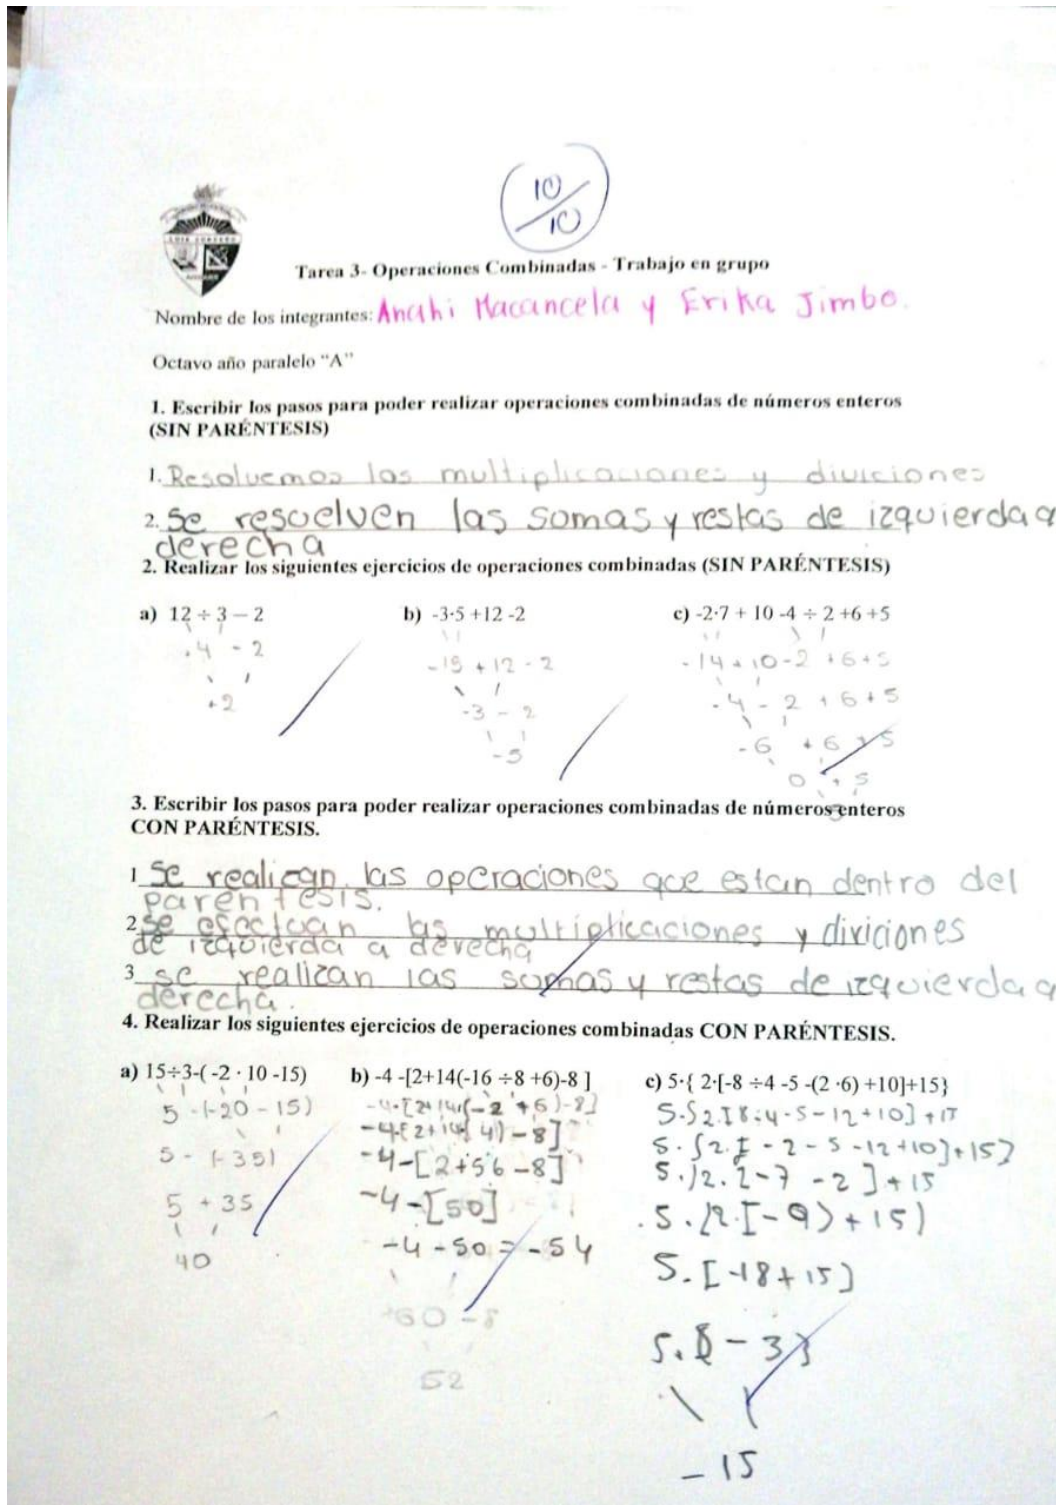 10/10
LUIS CORDERO
Tarea 3- Operaciones Combinadas - Trabajo en grupo
Nombre de los integrantes: Anahi Macancela y Erika Jimbo.
Octavo año paralelo “A”
1. Escribir los pasos para poder realizar operaciones combinadas de números enteros
(SIN PARÉNTESIS)
1. Resolvemos las multiplicaciones y diviciones
2. Se resuelven las somas y restas de izquierda a
derecha
2. Realizar los siguientes ejercicios de operaciones combinadas (SIN PARÉNTESIS)
a) 12 ÷ 3 – 2 b) -3·5 +12 -2 c) -2·7 + 10 -4 ÷ 2 +6 +5
4 - 2 -15 + 12 - 2 -14 + 10 - 2 + 6 + 5
+2 -3 - 2 -4 - 2 + 6 + 5
-5 -6 + 6 + 5
0 + 5
3. Escribir los pasos para poder realizar operaciones combinadas de números enteros
CON PARÉNTESIS.
1 Se realican las operaciones que estan dentro del
parentesis.
2 se efectuan las multiplicaciones y diviciones
de izquierda a derecha
3 se realizan las somas y restas de izquierda a
derecha.
4. Realizar los siguientes ejercicios de operaciones combinadas CON PARÉNTESIS.
a) 15÷3-( -2 · 10 -15) b) -4 -[2+14(-16 ÷8 +6)-8 ] c) 5·{ 2·[-8 ÷4 -5 -(2 ·6) +10]+15}
5 - (-20 - 15) -4-[2+14(-2 + 6)-8] 5·{2·[8÷4-5-12+10]+15
-4-[2+14( 4)-8] 5·{2·[-2-5-12+10]+15}
5 - (-35) -4-[2+56-8] 5·{2·[-7 -2]+15
5 + 35 -4-[50] 5·{2·[-9)+15)
40 -4-50=-54 5·[-18+15]
60 - 8 5·{-3}
52
-15